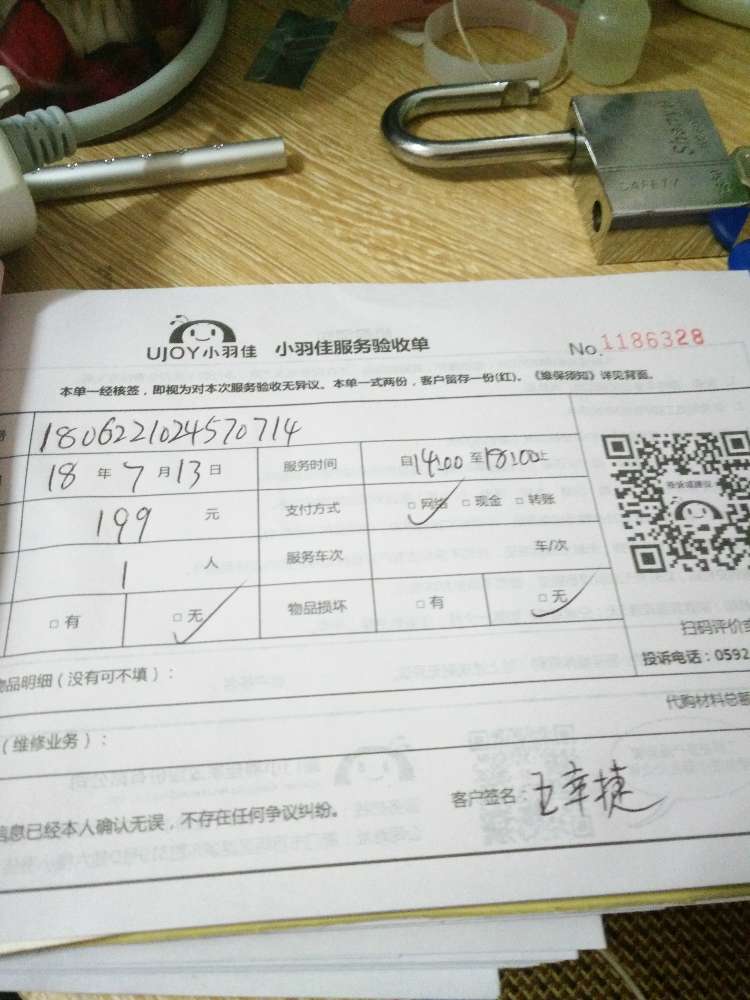 UJOY小羽佳 小羽佳服务验收单 No.1186328
本单一经核签，即视为对本次服务验收无异议。本单一式两份，客户留存一份(红)。《维保须知》详见背面。
1806221024570714
18 年 7 月 13 日 服务时间 自 14:00 至 18:00 止
199 元 支付方式 □ 网络 □ 现金 □ 转账
1 人 服务车次 车/次
□ 有 □ 无 物品损坏 □ 有 □ 无
扫码评价或
物品明细（没有可不填）： 投诉电话：0592
代购材料总额
（维修业务）：
信息已经本人确认无误，不存在任何争议纠纷。 客户签名：王幸捷
SAFETY